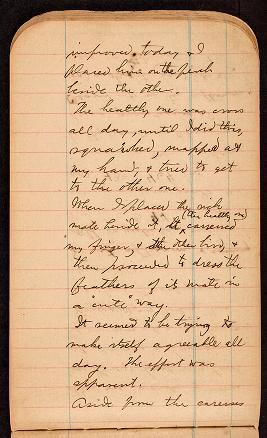 improved today &
placed him on the perch
beside the other.
The healthy one was cross
all day, until I did this,
squawked, snapped at
my hand, & tried to get
to the other one.
When I placed the sick
mate beside it, (the healthy one)
it caressed
my finger, & the other bird, &
then proceeded to dress the
feathers of its mate in
a "cute" way.
It seemed to be trying to
make itself agreeable all
day. The effort was
apparent.
Aside from the caresses